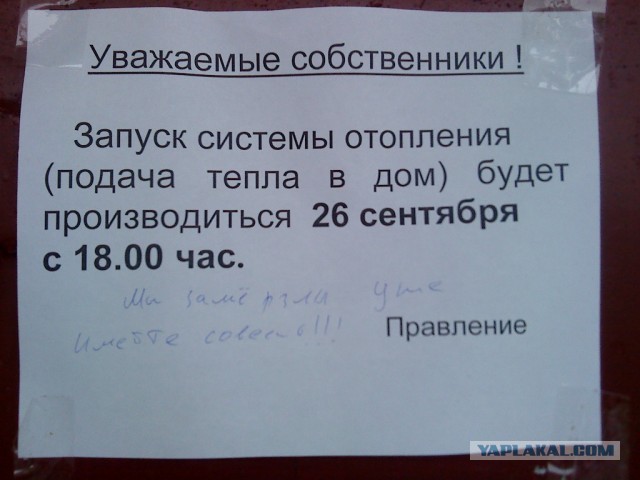 Уважаемые собственники !
Запуск системы отопления
(подача тепла в дом) будет
производиться 26 сентября
с 18.00 час.
Мы замёрзли уже
Имейте совесть!!!
Правление
YAPLAKAL.COM